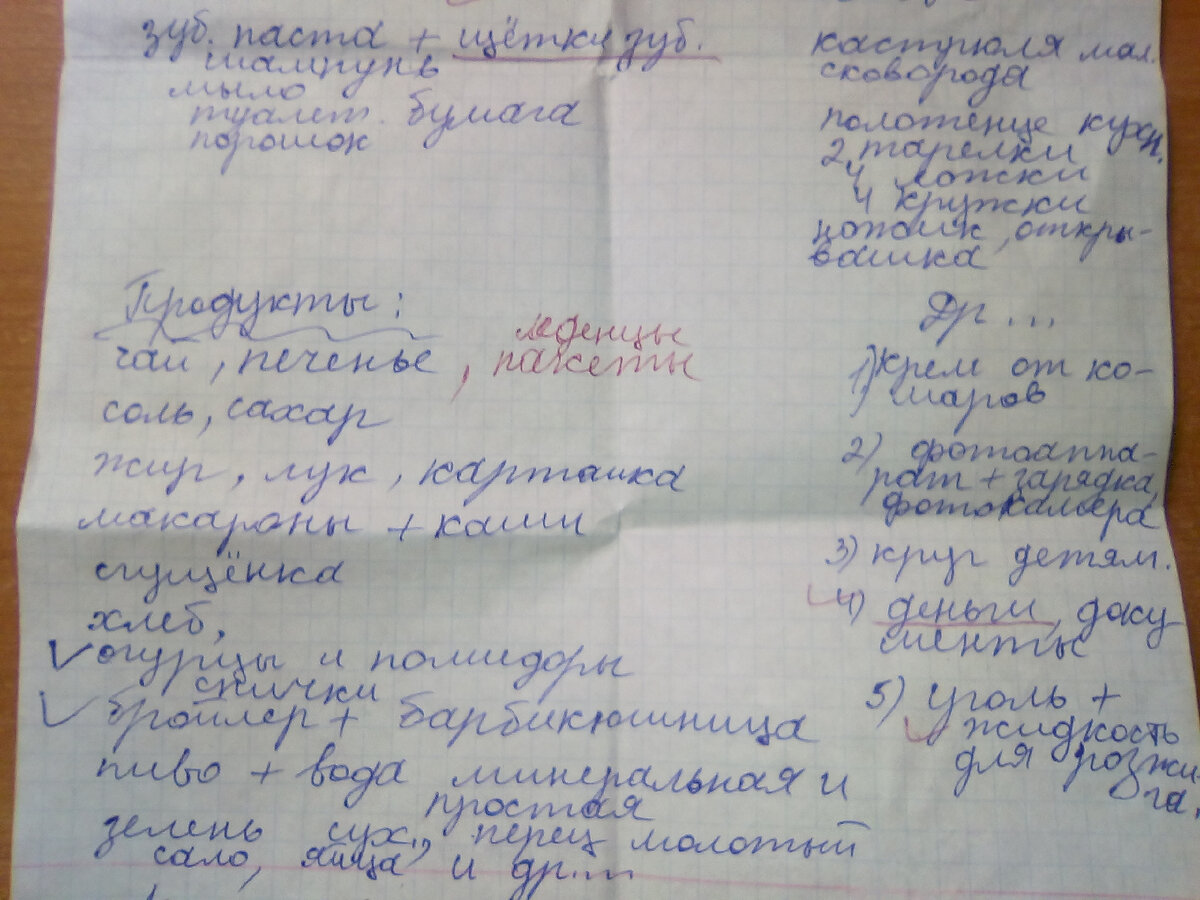 зуб. паста + щётки зуб.
шампунь
мыло
туалет. бумага
порошок
Продукты:
леденцы
чай, печенье, пакеты
соль, сахар
жир, лук, карташка
макароны + каши
сгущёнка
хлеб,
огурцы и помидоры
спички
бройлер + барбикюшница
пиво + вода минеральная и
простая
зелень сух., перец молотый
сало, яйца и др....
кастрюля мал.
сковорода
полотенце кухн.
2 тарелки
4 ложки
4 кружки
ножик, откры-
вашка
Др...
1) Крем от ко-
маров
2) фотоаппа-
рат + зарядка,
фотокамера
3) круг детям.
4) деньги, доку
менты
5) уголь +
жидкость
для розжи-
га.